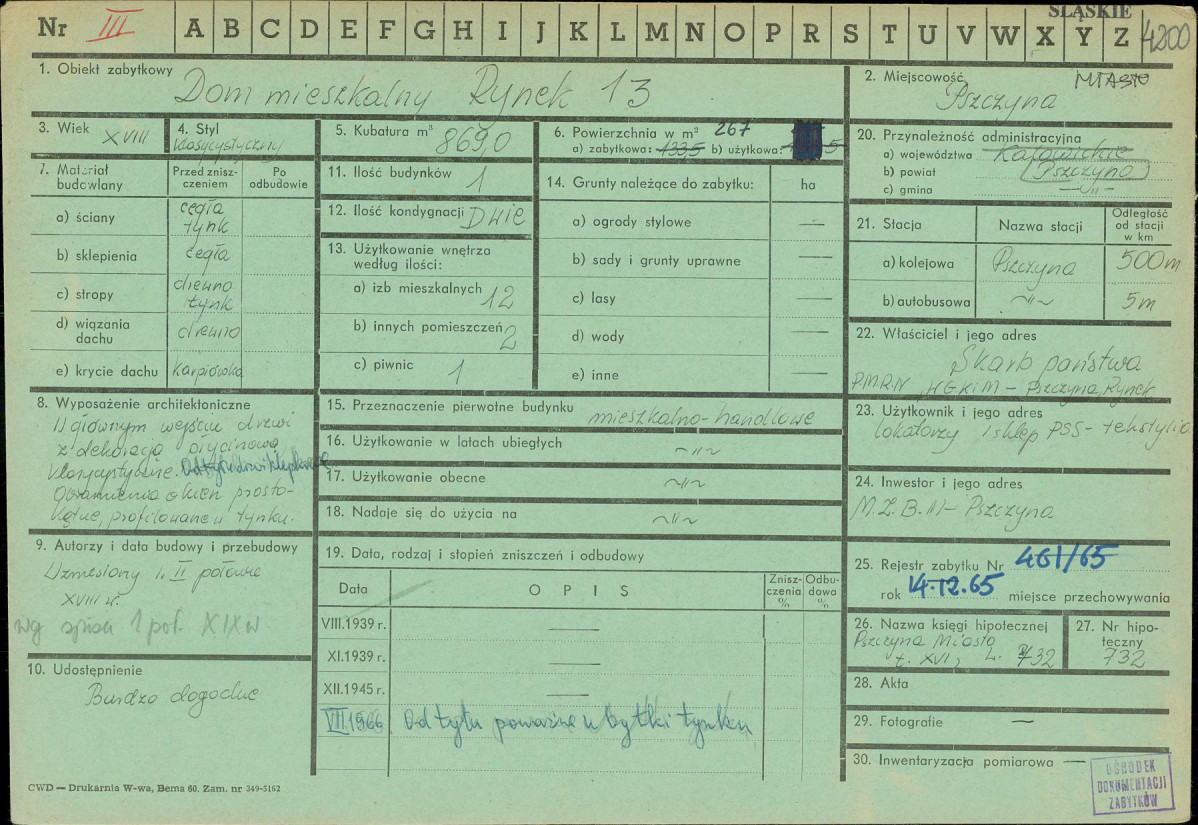 ŚLĄSKIE
Nr III A B C D E F G H I J K L M N O P R S T U V W X Y Z 4200
1. Obiekt zabytkowy
Dom mieszkalny Rynek 13
2. Miejscowość MIASTO
Pszczyna
3. Wiek XVIII
4. Styl
klasycystyczny
5. Kubatura m³ 869,0
6. Powierzchnia w m² 267
a) zabytkowa: 133,5 b) użytkowa:
7. Materiał budowlany
Przed zniszczeniem
Po odbudowie
a) ściany cegła tynk
b) sklepienia cegła
c) stropy drewno tynk
d) wiązania dachu drewno
e) krycie dachu karpiówka
8. Wyposażenie architektoniczne
W głównym wejściu drzwi
z dekoracją płycinową
klasycystyczne.
Obramienia okien prosto-
kątne, profilowane w tynku.
9. Autorzy i data budowy i przebudowy
Wzniesiony w II połowie
XVIII w.
wg spisu 1 poł. XIX w
10. Udostępnienie
Bardzo dogodne
11. Ilość budynków 1
12. Ilość kondygnacji Dwie
13. Użytkowanie wnętrza
według ilości:
a) izb mieszkalnych 12
b) innych pomieszczeń 2
c) piwnic 1
14. Grunty należące do zabytku: ha
a) ogrody stylowe —
b) sady i grunty uprawne —
c) lasy —
d) wody —
e) inne —
15. Przeznaczenie pierwotne budynku mieszkalno-handlowe
16. Użytkowanie w latach ubiegłych ~"~
17. Użytkowanie obecne ~"~
18. Nadaje się do użycia na ~"~
19. Data, rodzaj i stopień zniszczeń i odbudowy
Data
OPIS
Zniszczenia %
Odbudowa %
VIII.1939 r. —
XI.1939 r. —
XII.1945 r. —
VII.1966 Od tyłu poważne ubytki tynku
20. Przynależność administracyjna
a) województwo Katowickie
b) powiat Pszczyna
c) gmina —"—
21. Stacja
Nazwa stacji
Odległość od stacji w km
a) kolejowa Pszczyna 500 m
b) autobusowa ~"~ 5 m
22. Właściciel i jego adres
Skarb państwa
PMRN WGKiM – Pszczyna, Rynek
23. Użytkownik i jego adres
lokatorzy i sklep PSS - tekstylia
24. Inwestor i jego adres
M.Z.B.M – Pszczyna
25. Rejestr zabytku Nr 461/65
rok 14.12.65 miejsce przechowywania
26. Nazwa księgi hipotecznej
Pszczyna Miasto
t. XVI, L. 732
27. Nr hipoteczny
732
28. Akta
29. Fotografie —
30. Inwentaryzacja pomiarowa —
OŚRODEK
DOKUMENTACJI
ZABYTKÓW
CWD — Drukarnia W-wa, Bema 60. Zam. nr 349-5162